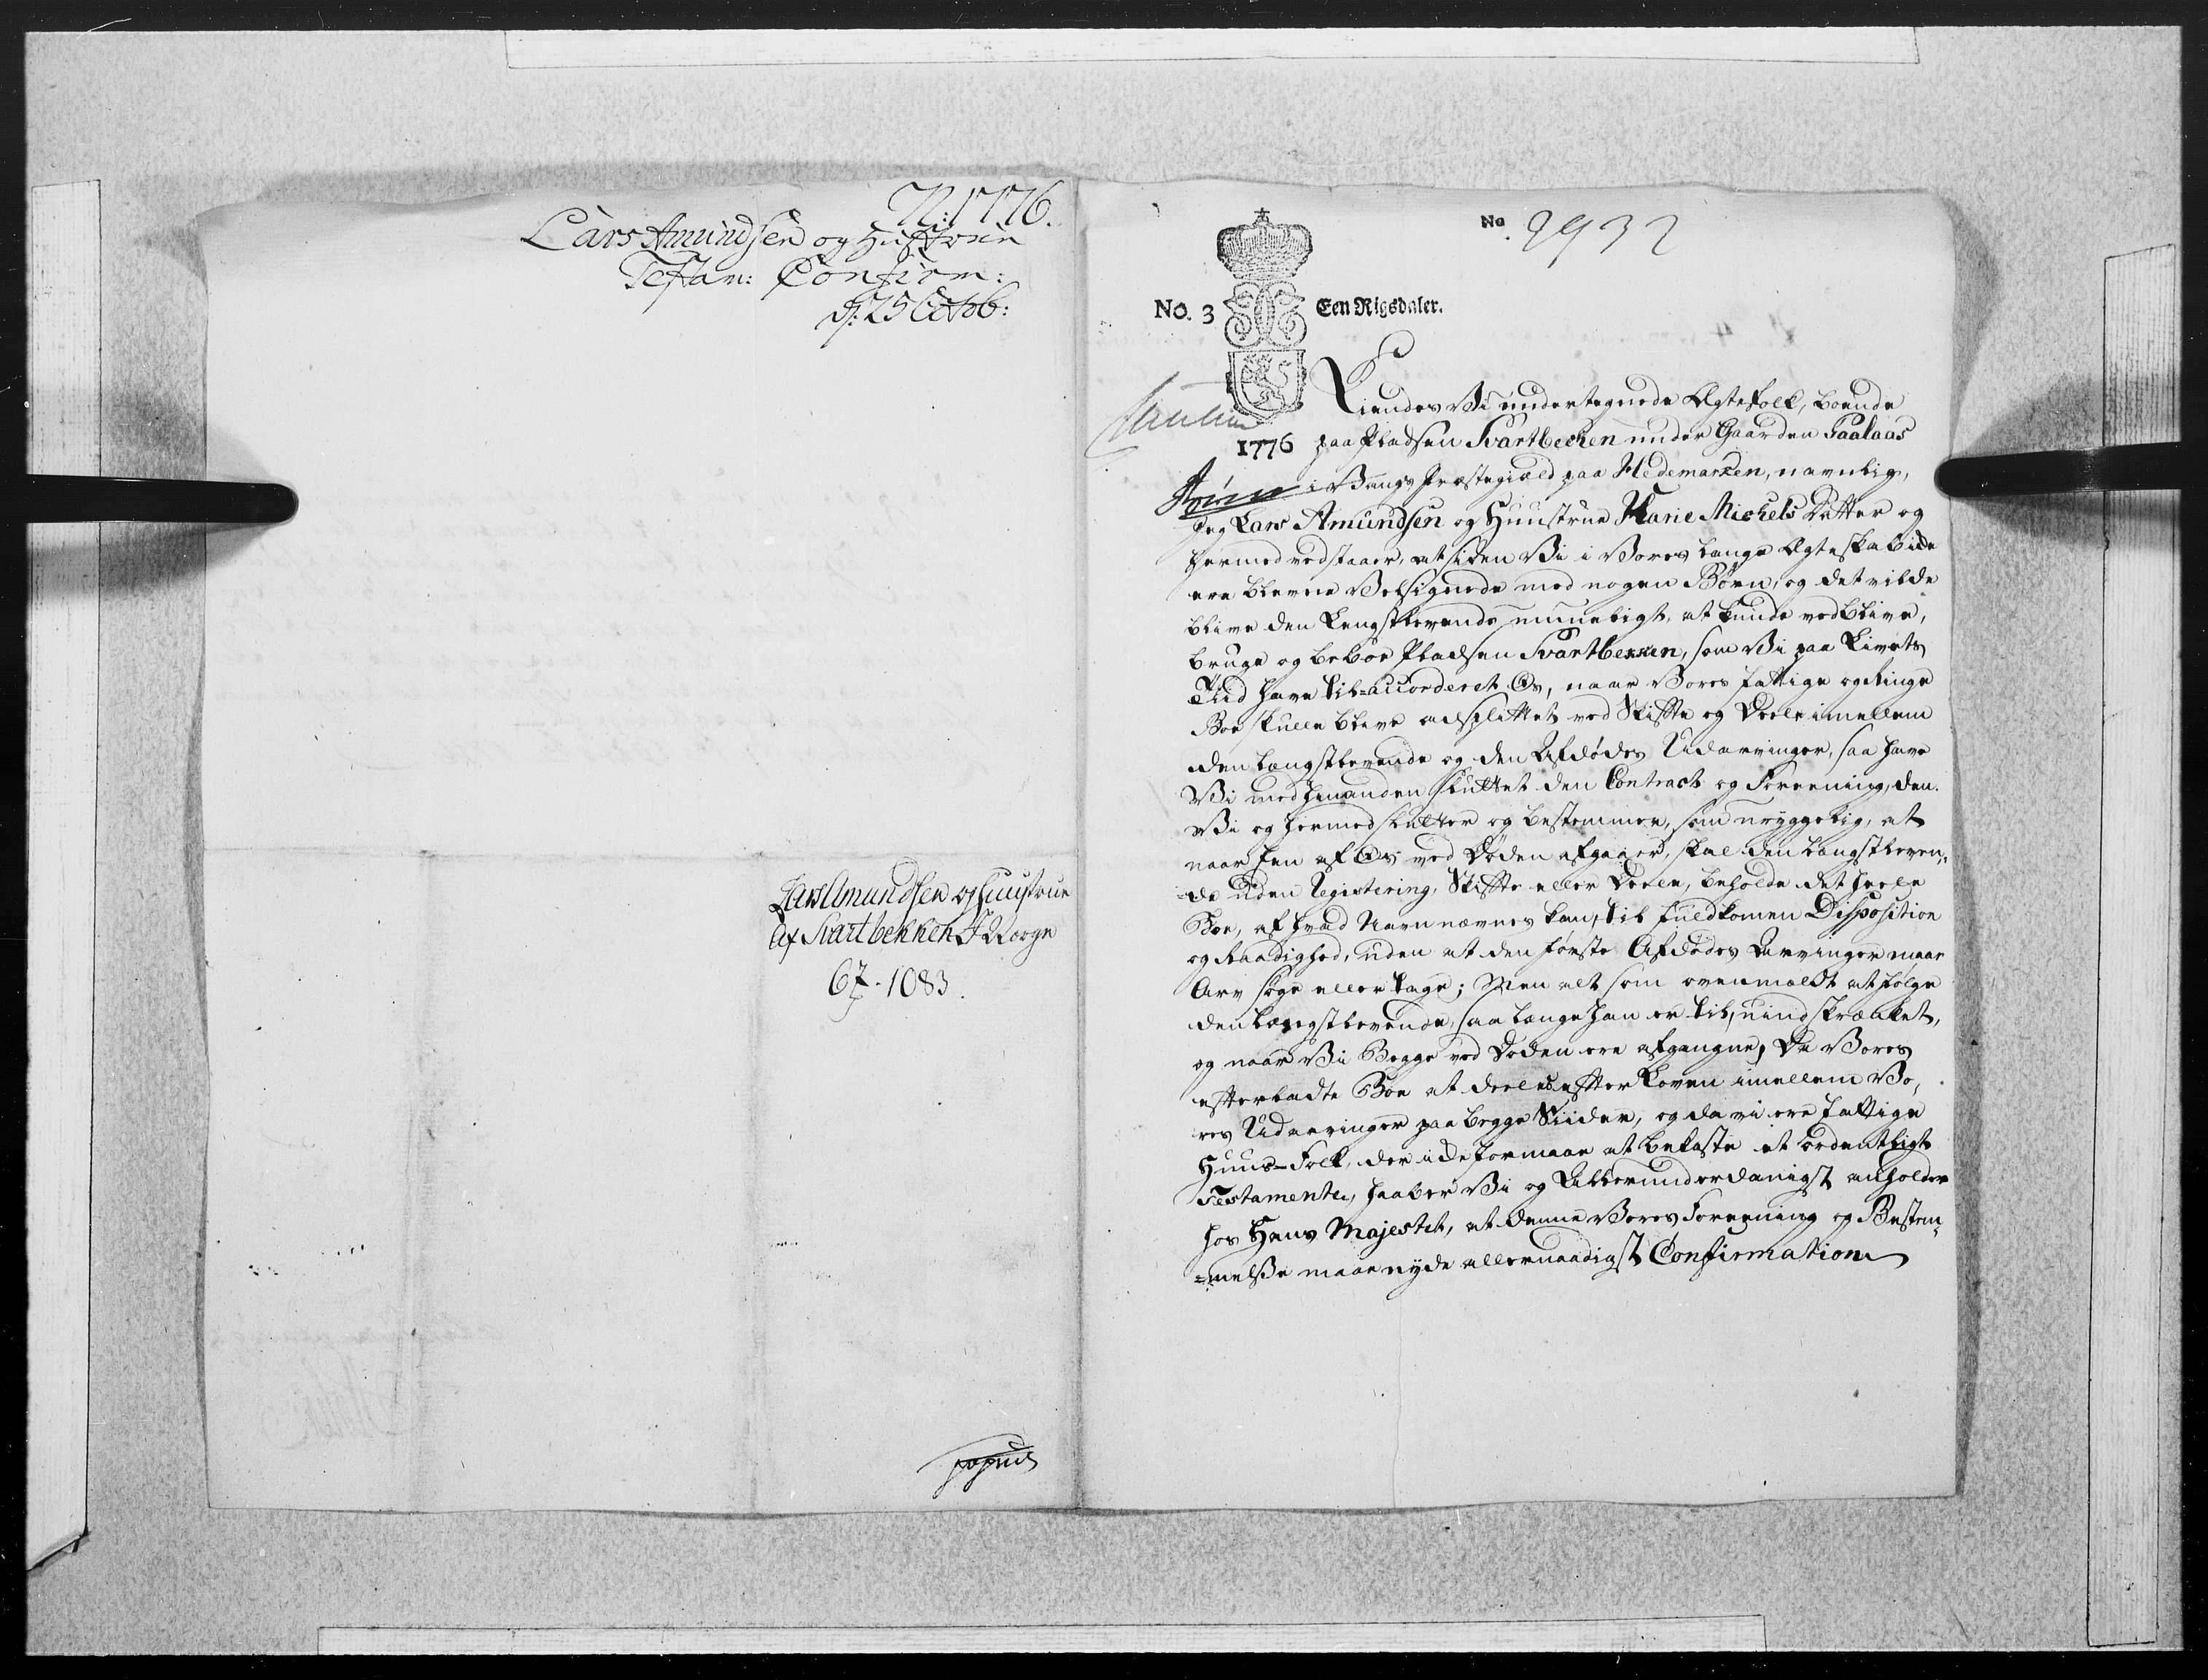 N: 1776.
Lars Amundsen og Hustrue
Testam: Confirm:
d: 25 Octob:
Lars Amundsen og Huustrue
af Svartbekken I Norge
67. 1083.
No 2932
No. 3 Een Rigsdaler.
1776
Kiendes Vi undertegnede Ægtefolk, boende
paa Pladsen Svartbecken under Gaarden Faalaas
i Vangs Præstegiæld paa Hedemarken, navnlig,
Jeg Lars Amundsen og Huustrue Marie Michels Datter og
hermed vedstaaer, at siden Vi i Vores lange Ægteskab icke
ere blevne Velsignede med nogen Børn, og det vilde
blive den Længstlevende umueligt, at kunde vedblive,
bruge og beboe Pladsen Svartbekken, som Vi paa Livets
Tiid have til-accorderet Os, naar Vores fattige og Ringe
Boe skulle blive adsplittet ved Skiffte og Deele imellem
den længstlevende og den Afdødes Udarvinger, saa have
Vi med hinanden sluttet den Contract og Foreening, den
Vi og hermed slutter og bestemmer, som uryggelig, at
naar Een af Os ved Døden afgaaer, skal den længstleven-
=de uden Registering, Skiffte eller Deele, beholde det heele
Boe, af hvad Navn nævnes kan, til fuldkomen Disposition
og Raadighed, uden at den første Afdødes Arvinger maae
Arv søge eller tage; Men alt som ovenmeldt at følge
den længstlevende, saa længe han er til, uindskrænket,
og naar Vi Begge ved Døden ere afgangne, Da Vores
efterladte Boe at deeles efter Loven imellem Vo-
res Udarvinger paa begge Siider, og da vi ere fattige
Huus-Folk, der icke formaar at bekoste et ordentligt
Testamente, haaber Vi og Allerunderdanigst anholder
hos Hans Majestet, at denne Vores Foreening og Bestem-
=melse maae nyde allernaadigst Confirmation